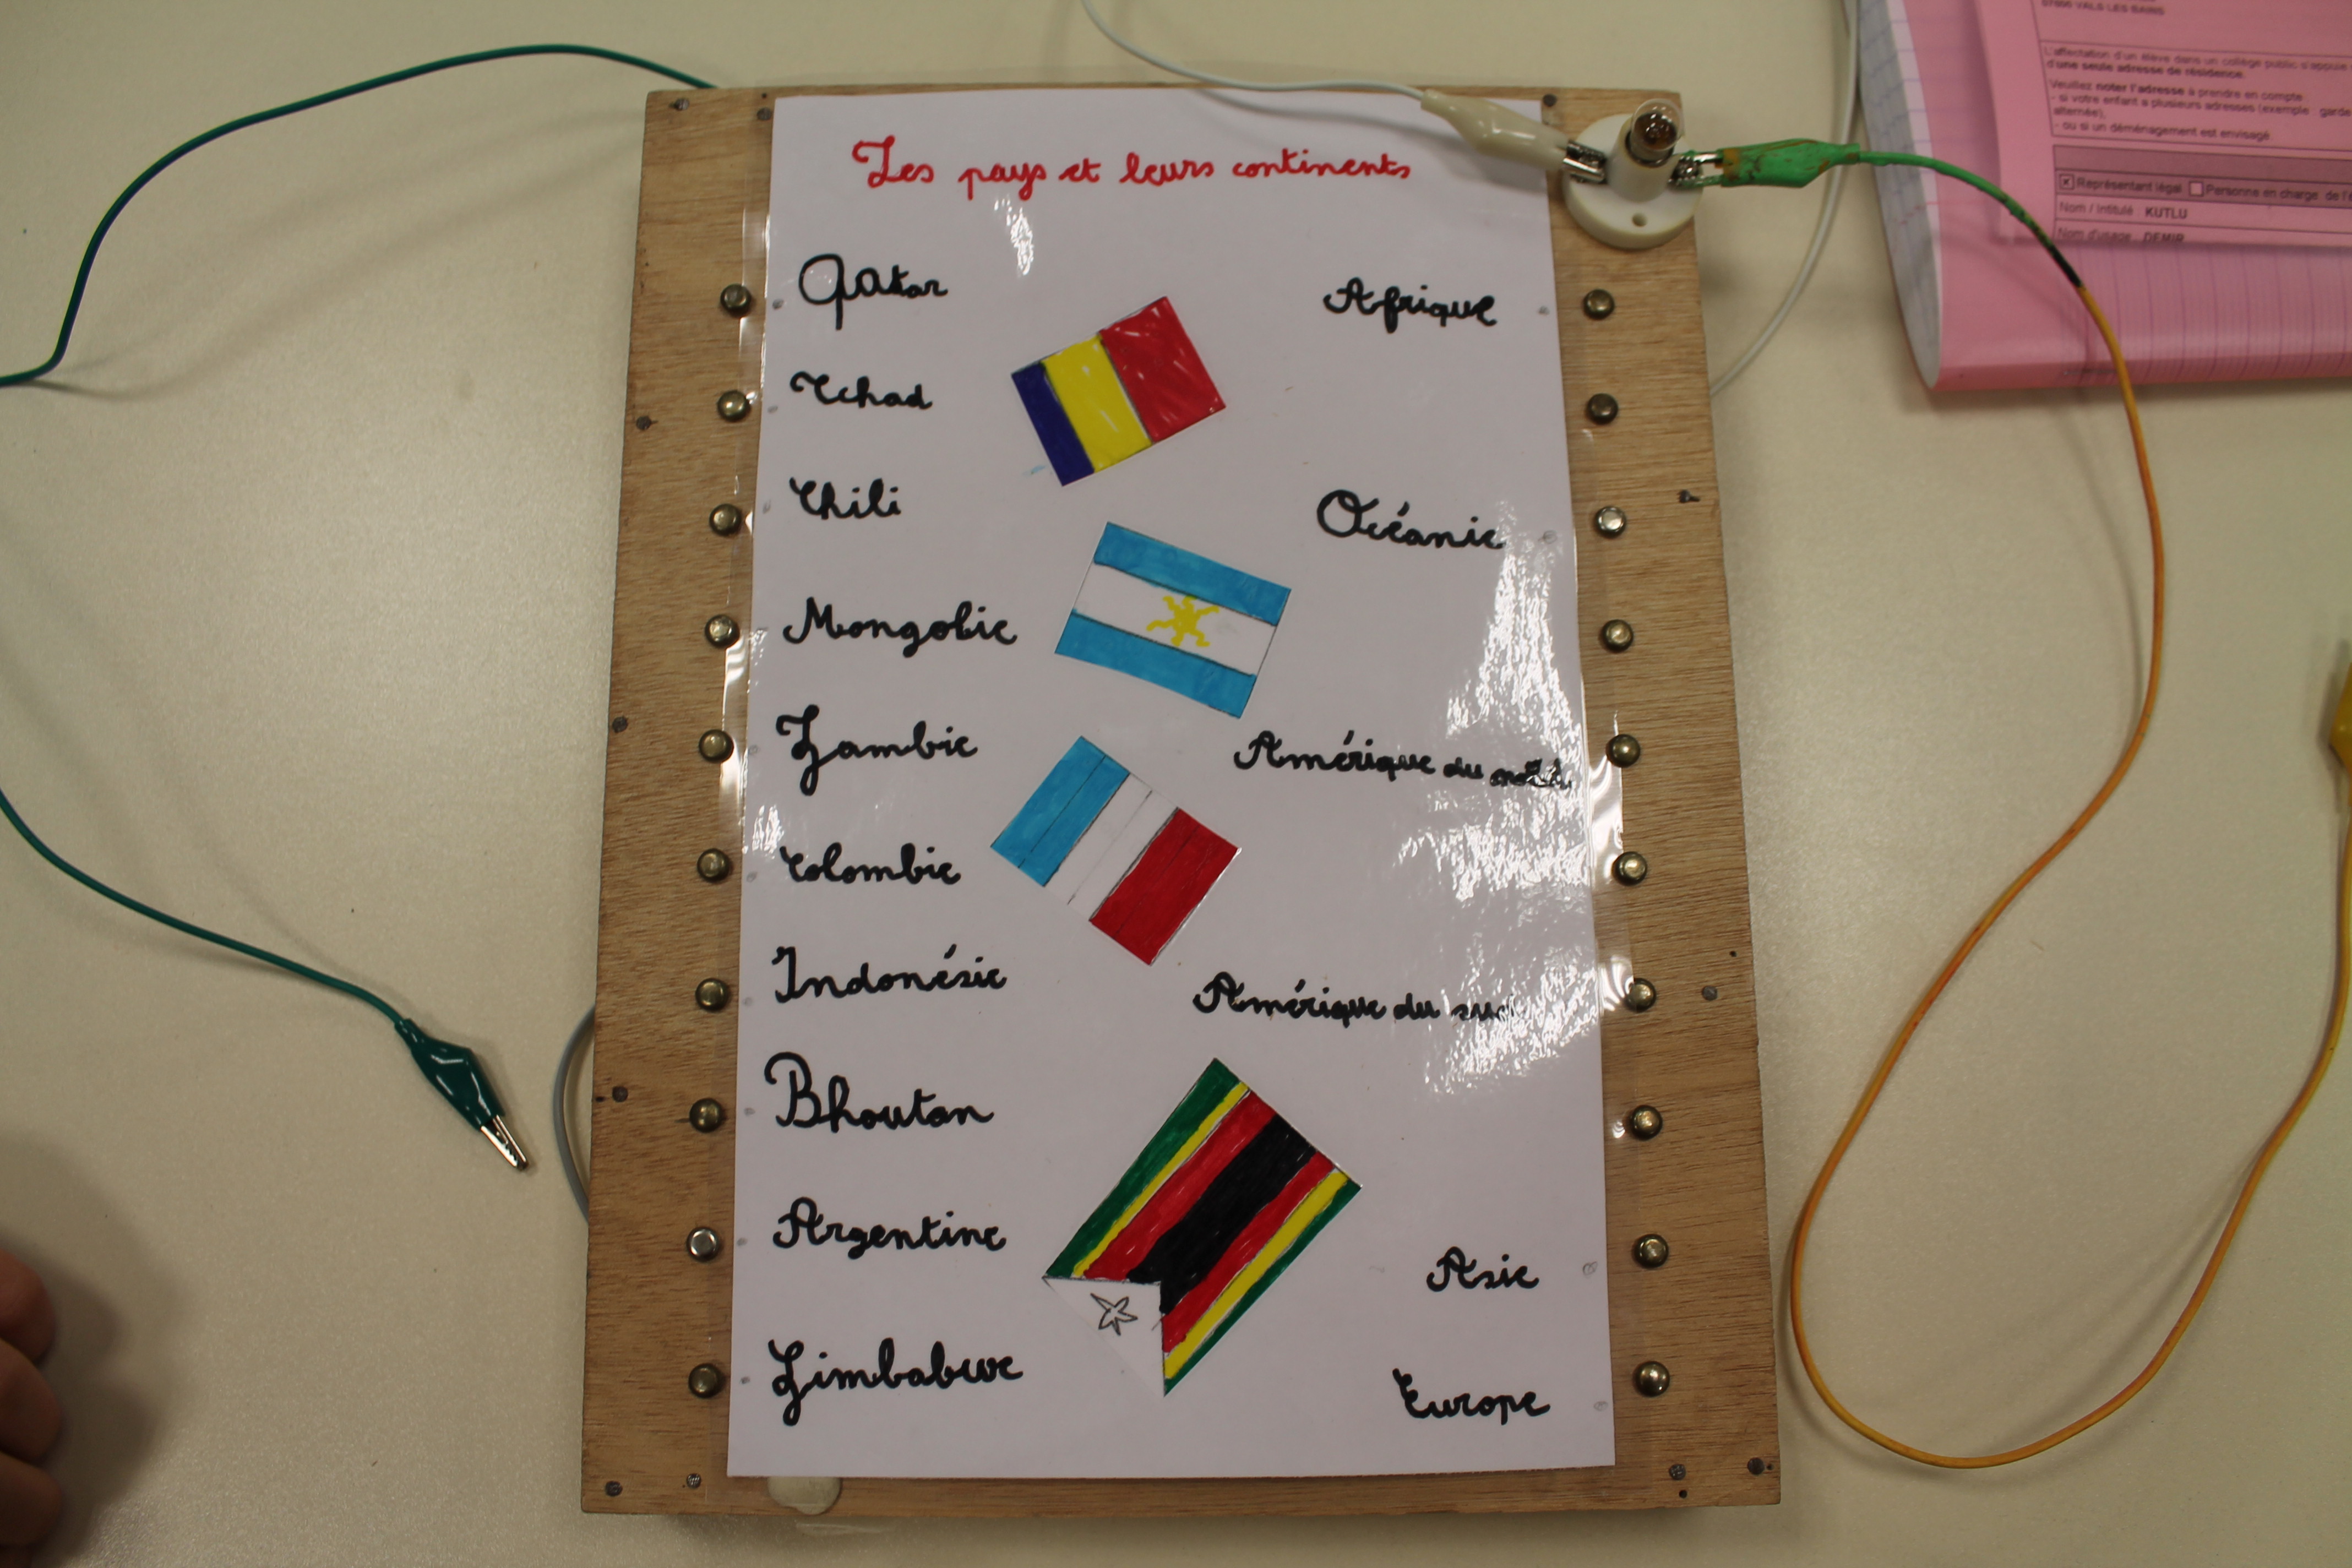 Les pays et leurs continents
Qatar
Tchad
Chili
Mongolie
Zambie
Colombie
Indonésie
Bhoutan
Argentine
Zimbabwe
Afrique
Océanie
Amérique du
Amérique du sud
Asie
Europe
07600 VALS LES BAINS
L'affectation d'un élève dans un collège public s'appuie
d'une seule adresse de résidence.
Veuillez noter l'adresse à prendre en compte
- si votre enfant a plusieurs adresses (exemple : garde
alternée),
- ou si un déménagement est envisagé.
Représentant légal Personne en charge de
Nom / Intitulé : KUTLU
Nom d'usage : DEMIR